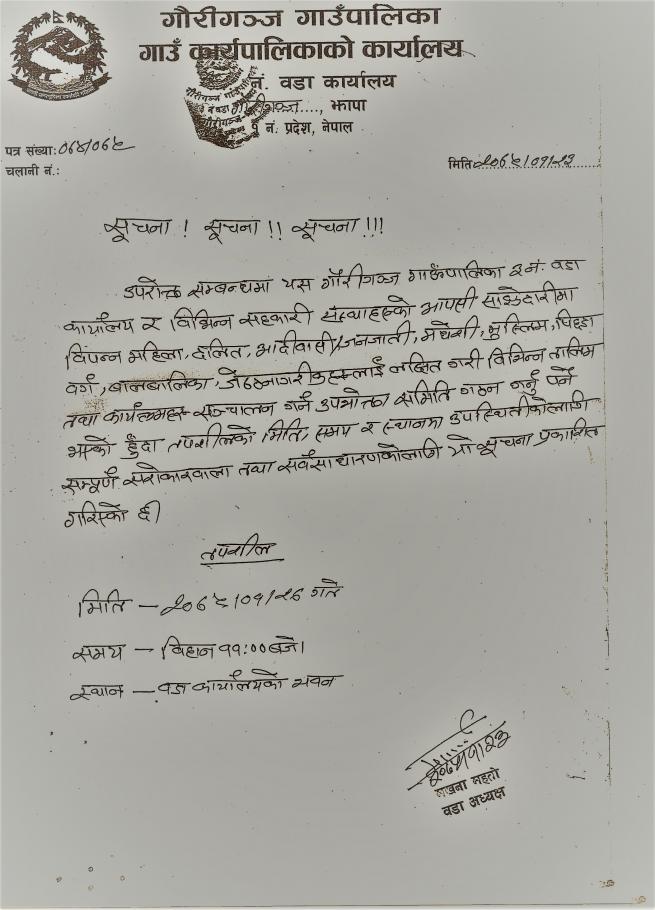 गौरीगञ्ज गाउँपालिका
गाउँ कार्यपालिकाको कार्यालय
नं. वडा कार्यालय
गौरीगञ्ज...., झापा
१ नं. प्रदेश, नेपाल
पत्र संख्याः
चलानी नं.:
मिति
सूचना ! सूचना !! सूचना !!!
उपरोक्त सम्बन्धमा यस गौरीगञ्ज गाउँपालिका २ नं. वडा
कार्यालय र विभिन्न सहकारी संस्थाहरुको आपसी साझेदारीमा
विपन्न महिला, दलित, आदीवासी/जनजाती, मधेशी, मुस्लिम, पिछडा
वर्ग, बालबालिका, जेष्ठनागरीकहरुलाई लक्षित गरी विभिन्न तालिम
तथा कार्यक्रमहरु सञ्चालन गर्न उपभोक्ता समिति गठन गर्नु पर्ने
भएको हुँदा तपशीलको मिति, समय र स्थानमा उपस्थितीकोलागि
सम्पूर्ण सरोकारवाला तथा सर्वसाधारणकोलागि यो सूचना प्रकाशित
गरिएको छ।
तपशील
मिति – गते
समय – विहान ११:०० बजे।
स्थान – वडा कार्यालयको भवन
मखना महतो
वडा अध्यक्ष